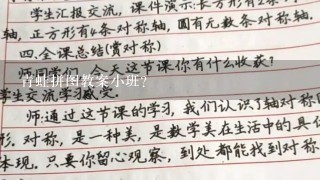 学生汇报交流,课件演示:长方形有2条
轴,正方形有4条对称轴,圆有无数条对称轴.
四.全课总结(赏对称)
今天这节课你有什么收获?
青蛙拼图教案小班?
学生交流学习感受.
师:通过这节课的学习,我们认识了轴对称
形.对称,是一种美,是数学美在生活中的具
体现.只要你留心观察,到处都能找到对称